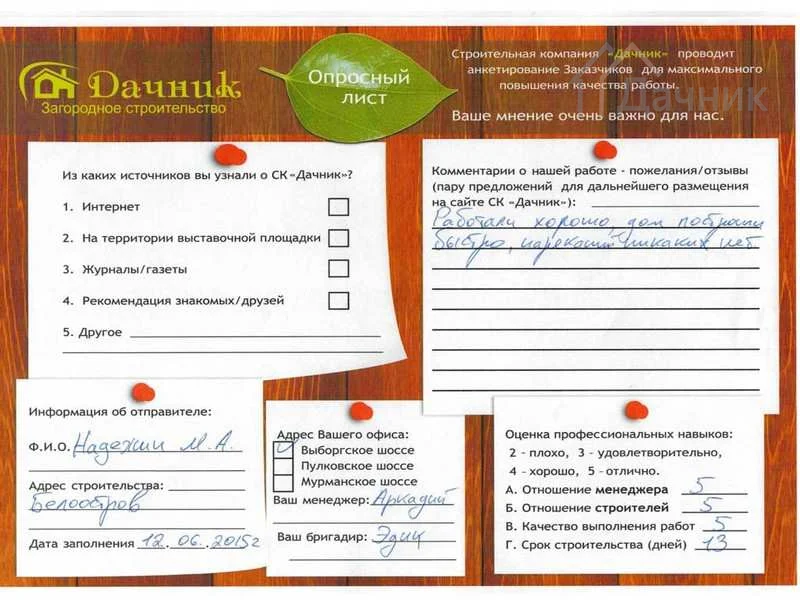 Дачник
Загородное строительство
Опросный
лист
Строительная компания «Дачник» проводит
анкетирование Заказчиков для максимального
повышения качества работы.
Ваше мнение очень важно для нас.
Дачник
Из каких источников вы узнали о СК «Дачник»?
1. Интернет
2. На территории выставочной площадки
3. Журналы/газеты
4. Рекомендация знакомых/друзей
5. Другое
Комментарии о нашей работе - пожелания/отзывы
(пару предложений для дальнейшего размещения
на сайте СК «Дачник»):
Работали хорошо, дом построили
быстро, нареканий никаких нет
Информация об отправителе:
Ф.И.О. М.А.
Адрес строительства:
Белоостров
Дата заполнения 12.06.2015г
Адрес Вашего офиса:
Выборгское шоссе
Пулковское шоссе
Мурманское шоссе
Ваш менеджер: Аркадий
Ваш бригадир: Эдик
Оценка профессиональных навыков:
2 - плохо, 3 - удовлетворительно,
4 - хорошо, 5 - отлично.
А. Отношение менеджера 5
Б. Отношение строителей 5
В. Качество выполнения работ 5
Г. Срок строительства (дней) 13